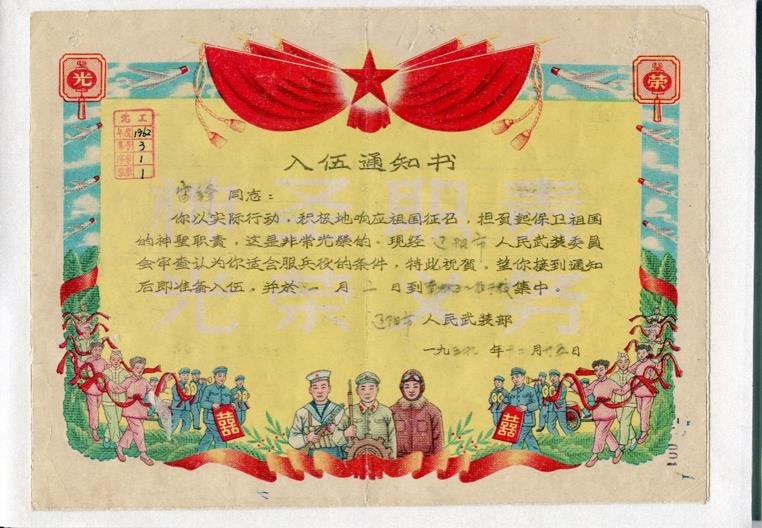 光
荣
沈工
年度 1962
3
1
1
入伍通知书
雷锋 同志：
你以实际行动，积极地响应祖国征召，担负起保卫祖国
的神聖职责，这是非常光榮的。现经 辽阳市 人民武装委员
会审查认为你适合服兵役的条件，特此祝贺。望你接到通知
后即准备入伍。并於 一 月 二 日到 集中。
辽阳市 人民武装部
一九五九 年 十二 月 廿五 日
神圣职责
光荣义务
囍
囍
001